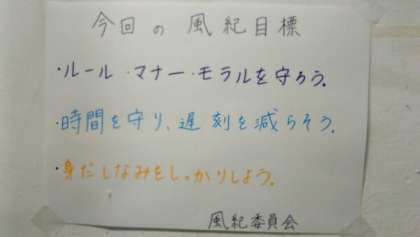 今回の風紀目標
・ルール・マナー・モラルを守ろう。
・時間を守り、遅刻を減らそう。
・身だしなみをしっかりしよう。
風紀委員会